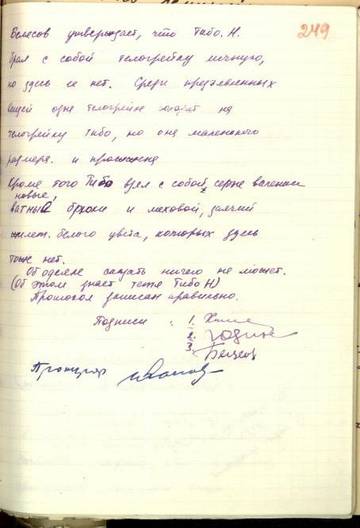 249
Белесов утверждает, что Тибо Н.
брал с собой телогрейку личную,
но здесь ее нет. Среди предъявленных
вещей одна телогрейка походит на
телогрейку Тибо, но она маленького
размера. и
Кроме того Тибо взял с собой серые валенки
новые,
ватные брюки и меховой, заячий
жилет. белого цвета, которых здесь
тоже нет.
Об одеяле сказать ничего не может.
(Об этом знает тетя Тибо Н)
Протокол записан правильно.
Подписи : 1.
2.
3.
Прокурор